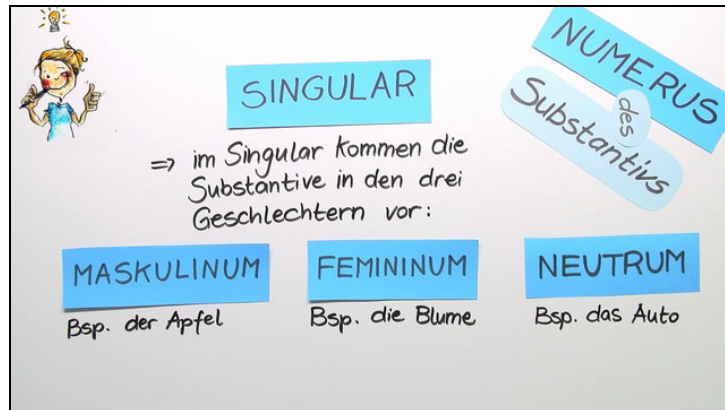 NUMERUS
des
Substantivs
SINGULAR
⇒ im Singular kommen die
Substantive in den drei
Geschlechtern vor:
MASKULINUM
Bsp. der Apfel
FEMININUM
Bsp. die Blume
NEUTRUM
Bsp. das Auto